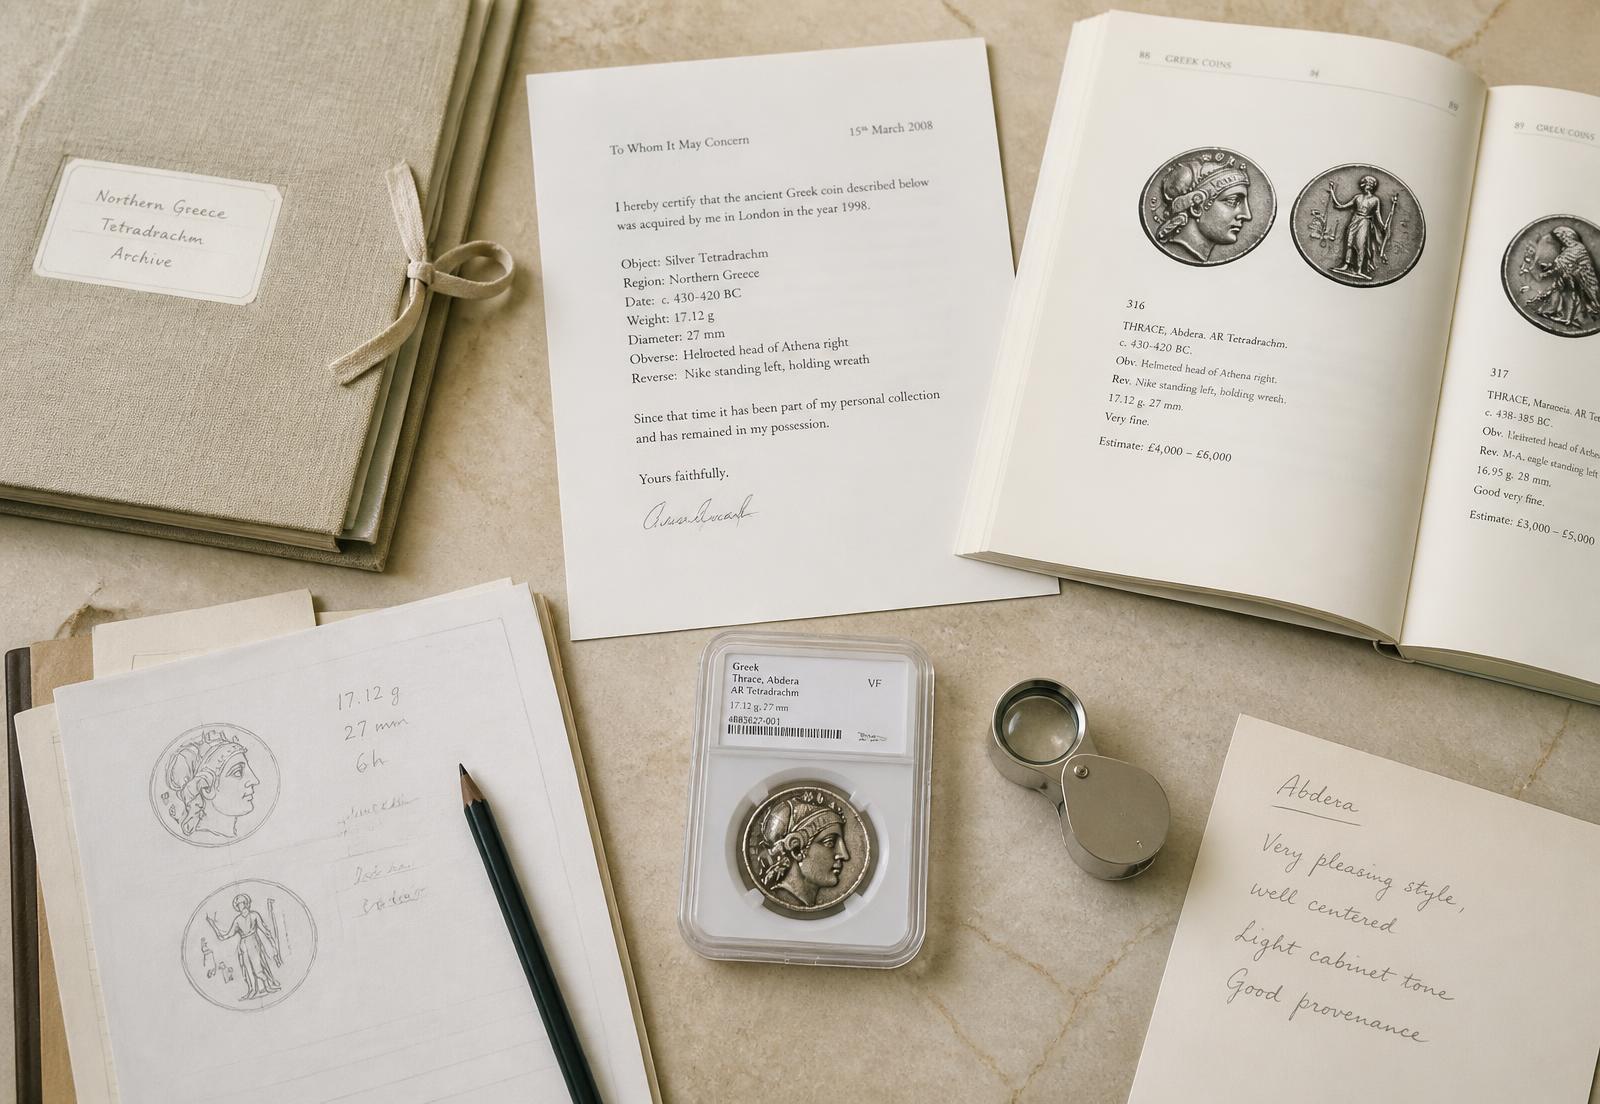 Northern Greece
Tetradrachm
Archive
To Whom It May Concern
15th March 2008
I hereby certify that the ancient Greek coin described below
was acquired by me in London in the year 1998.
Object: Silver Tetradrachm
Region: Northern Greece
Date: c. 430-420 BC
Weight: 17.12 g
Diameter: 27 mm
Obverse: Helmeted head of Athena right
Reverse: Nike standing left, holding wreath
Since that time it has been part of my personal collection
and has remained in my possession.
Yours faithfully.
88 GREEK COINS
89
316
THRACE, Abdera. AR Tetradrachm.
c. 430-420 BC.
Obv. Helmeted head of Athena right.
Rev. Nike standing left, holding wreath.
17.12 g. 27 mm.
Very fine.
Estimate: £4,000 – £6,000
89 GREEK COINS
317
THRACE, AR
c. 438-385 BC.
Obv. head of
Rev. M-A, eagle standing left
16,95 g. 28 mm.
Good very fine.
Estimate: £3,000 – £5,000
17.12 g
27 mm
6h
Greek
Thrace, Abdera
AR Tetradrachm
VF
17.12 g, 27 mm
4883627-001
Abdera
Very pleasing style,
well centered
Light cabinet tone
Good provenance